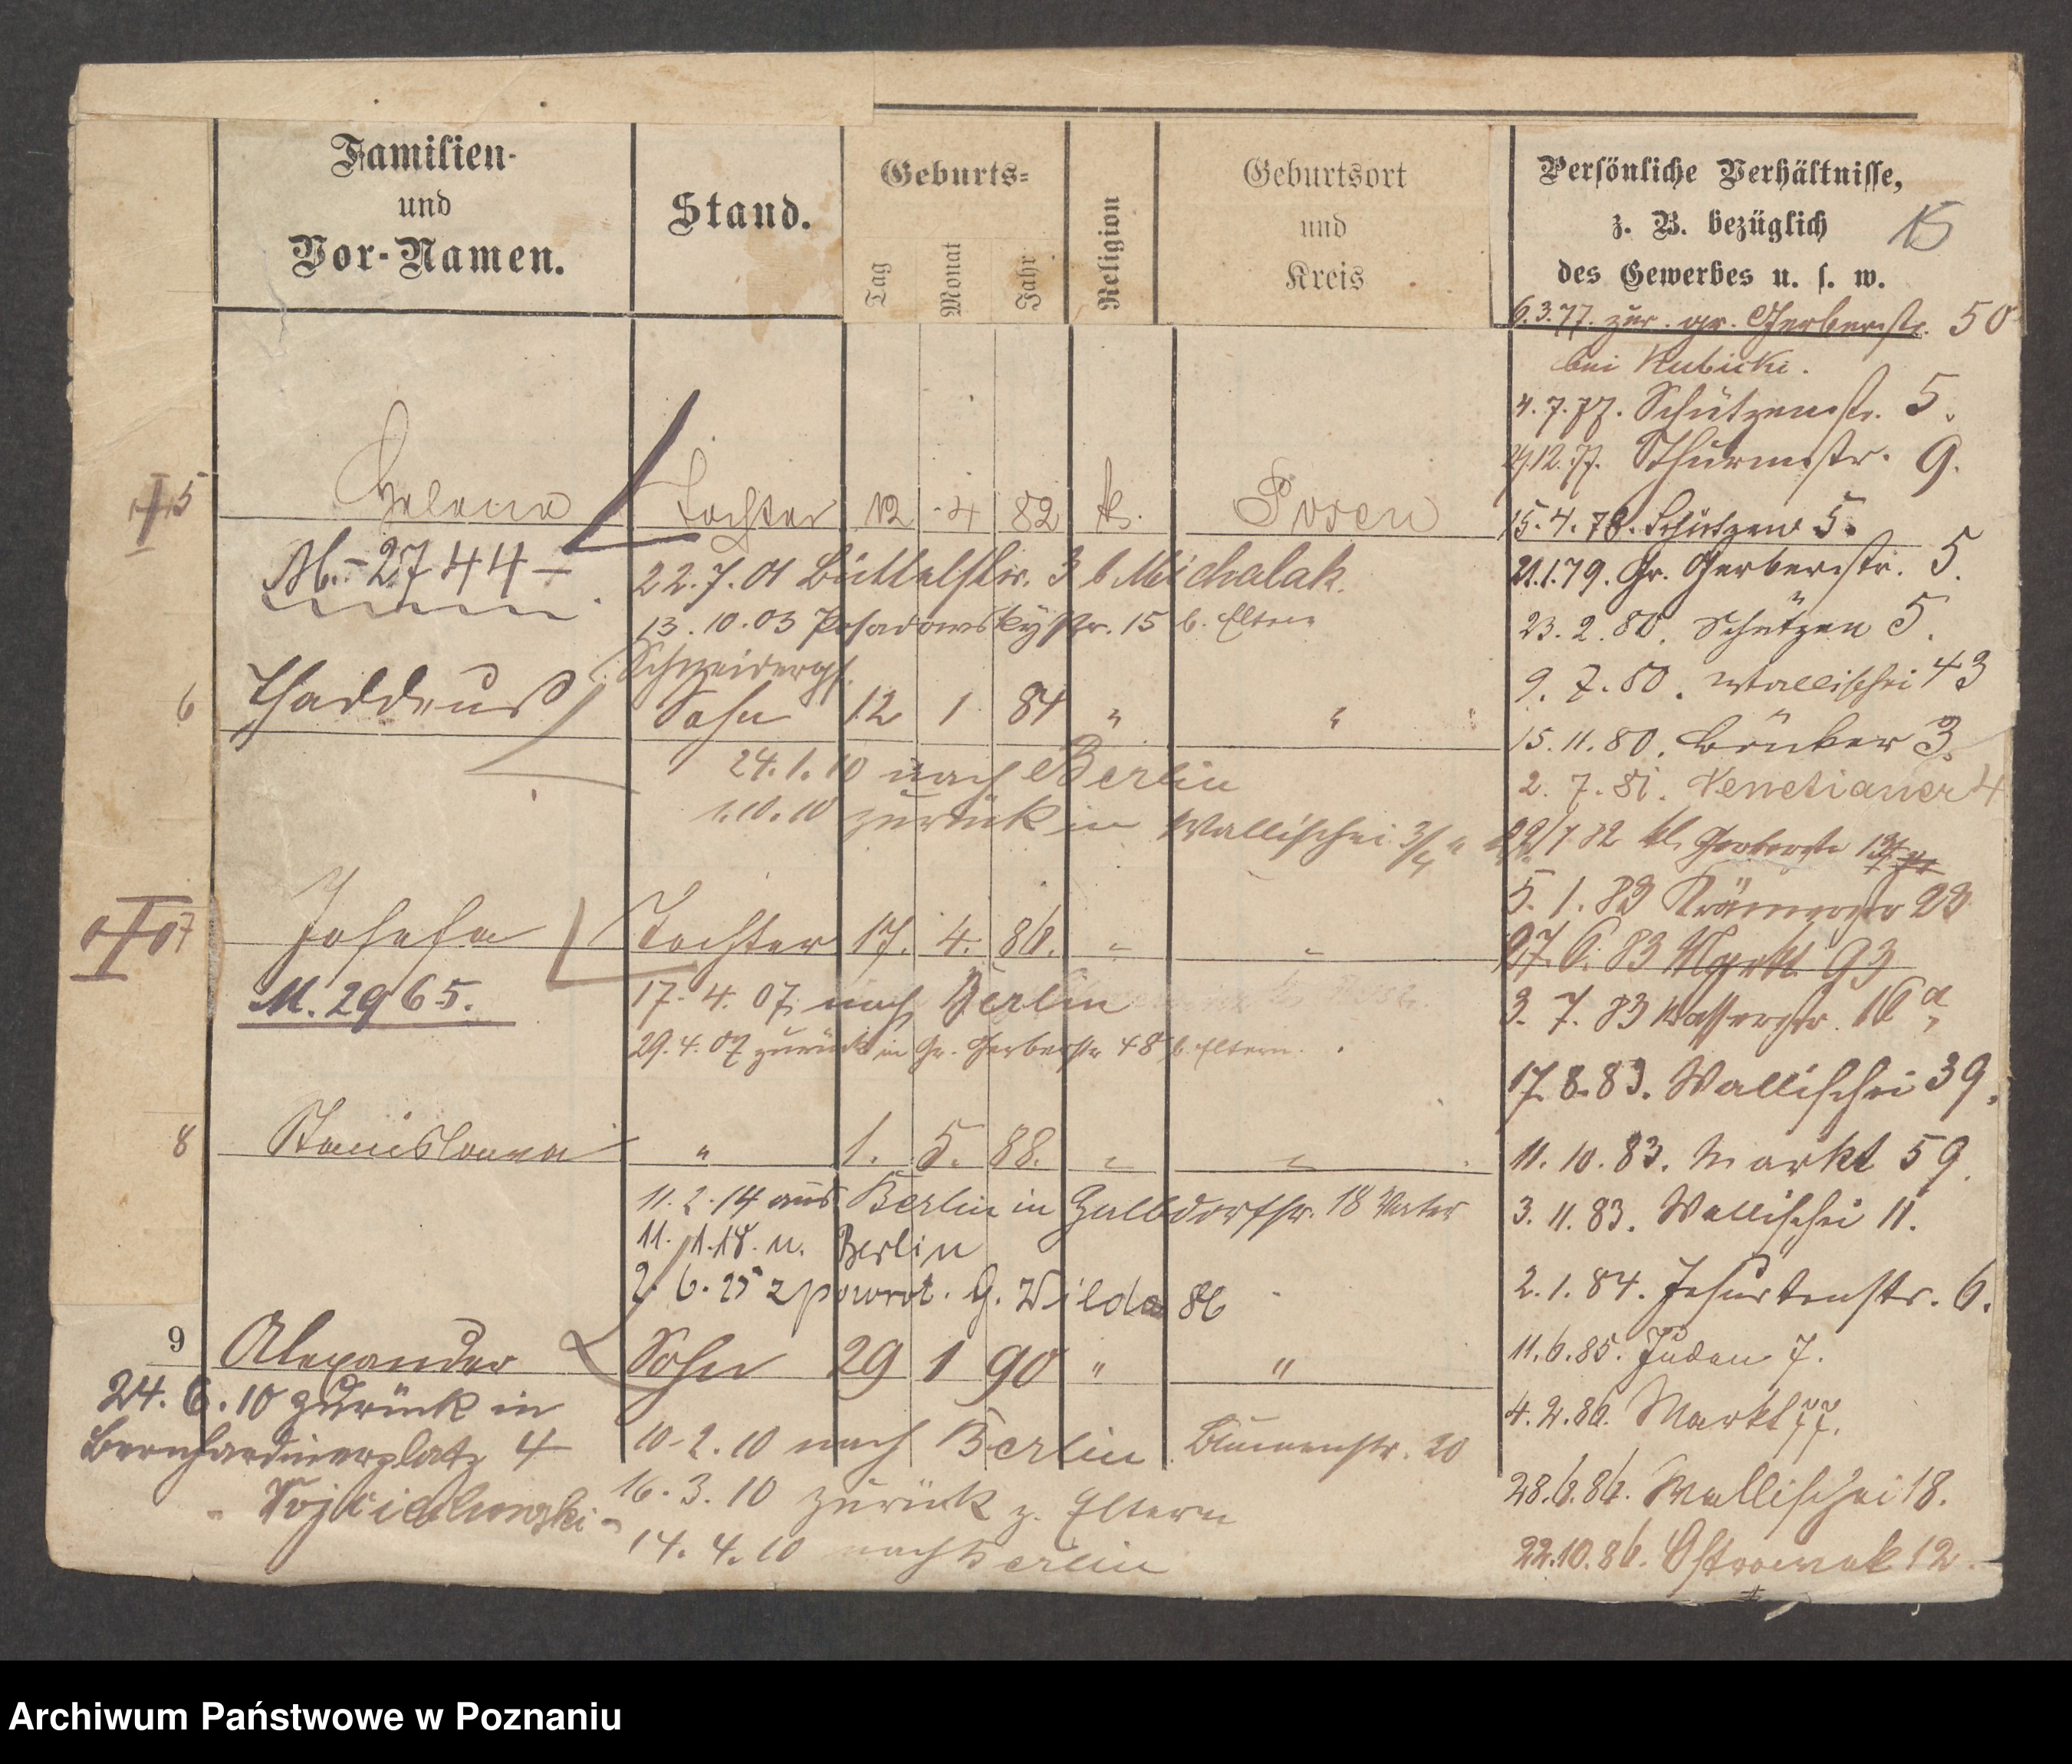 Familien-
und
Vor-Namen.
Stand.
Geburts-
Tag
Monat
Jahr
Religion
Geburtsort
und
Kreis
Persönliche Verhältnisse,
z. B. bezüglich
des Gewerbes u. s. w.
15
6.3.77. zur gr. Gerberstr. 50
bei Kubicki.
4.7.77. Schützenstr. 5.
29.12.77. Thurmstr. 9.
15.4.78. Schützen 5.
21.1.79. Gr. Gerberstr. 5.
23.2.80. Schützen 5.
9.7.80. Wallischei 43
15.11.80. 3.
2.7.81. Venetianer 4
29/1 82 kl. Gerberstr
5.1.83 Krämerstr 23
27.6.83 Markt 93
3.7.83 Wasserstr. 16a
17.8.83. Wallischei 39.
11.10.83. Markt 59.
3.11.83. Wallischei 11.
2.1.84. Jesuitenstr. 6.
11.6.85. Juden 7.
4.2.86. Markt 77.
28.6.86. Wallischei 18.
22.10.86. Ostrowek 12.
5 Helena Tochter 12 4 82 k. Posen
M.-2744-
22.7.01 Büttelstr. 3 b Michalak.
13.10.03 Posadowskystr. 15 b. Eltern
Schneidergs.
6 Thaddeus Sohn 12 1 84 " "
24.1.10 nach Berlin
1.10.10 zurück in Wallischei 3/4
7 Josefa Tochter 17. 4. 86. " "
M. 2965.
17.4.07 nach Berlin
29.4.07 zurück in Gr. Gerberstr 48 b. Eltern.
8 Stanislawa " 1. 5. 88. " "
11.2.14 aus Berlin in 18 Vater
11.1.18. n. Berlin
2.6.25 z powrot. G. Wilda 86
9 Alexander Sohn 29 1 90 " "
24.6.10 zurück in
Bernhardinerplatz 4
10.2.10 nach Berlin Blumenstr. 20
16.3.10 zurück z. Eltern
14.4.10 nach Berlin
Archiwum Państwowe w Poznaniu